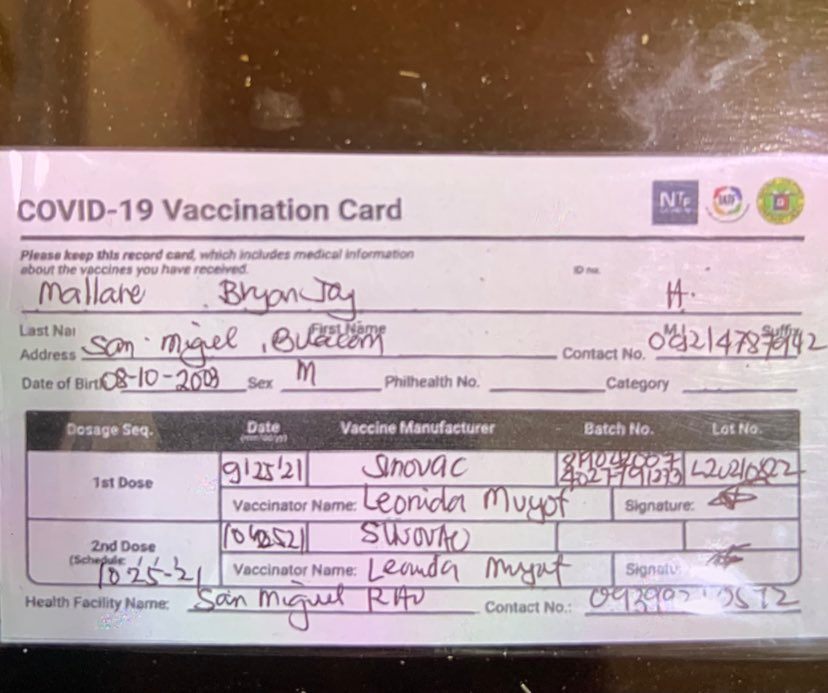 NTF IATF
COVID-19 Vaccination Card
Please keep this record card, which includes medical information
about the vaccines you have received. ID no.
Mallare Bryan Jay H.
Last Nar First Name M.I. Suffix
Address San Miguel, Bulacan Contact No.
Date of Birth 08-10-2003 Sex M Philhealth No. Category
Dosage Seq. Date Vaccine Manufacturer Batch No. Lot No.
(mm/dd/yy)
1st Dose 9'25'21 Sinovac L20210822
Vaccinator Name: Leonida Muyot Signature:
2nd Dose SINOVAC
(Schedule: 10'25'-21 Vaccinator Name: Leonida Muyot Signatu
Health Facility Name: San Miguel Contact No.: